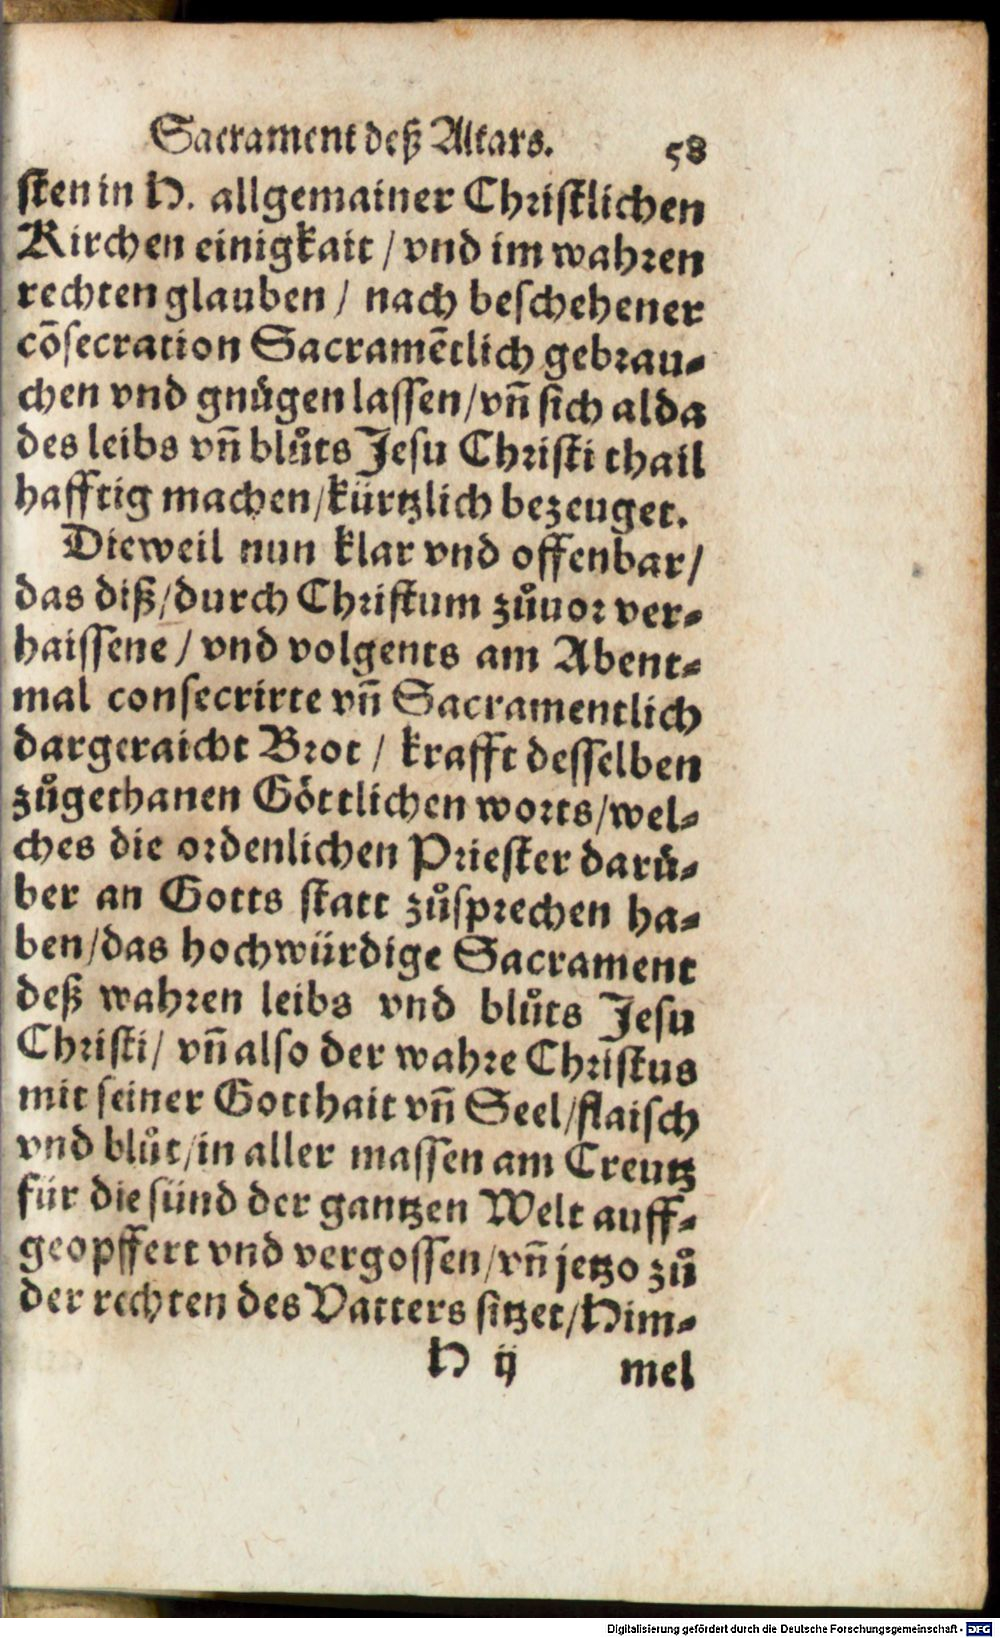 Sacrament deß Altars. 58
sten in H. allgemainer Christlichen
Kirchen einigkait / vnd im wahren
rechten glauben / nach beschehener
cõsecration Sacramẽtlich gebrau-
chen vnd gnügen lassen/vñ sich alda
des leibs vñ blůts Jesu Christi thail
hafftig machen/kürtzlich bezeuget.
Dieweil nun klar vnd offenbar/
das diß/durch Christum zůuor ver-
haissene / vnd volgents am Abent-
mal consecrirte vñ Sacramentlich
dargeraicht Brot / krafft desselben
zůgethanen Göttlichen worts/wel-
ches die ordenlichen Priester darü-
ber an Gotts statt zůsprechen ha-
ben/das hochwürdige Sacrament
deß wahren leibs vnd blůts Jesu
Christi/ vñ also der wahre Christus
mit seiner Gotthait vñ Seel/flaisch
vnd blůt/in aller massen am Creutz
für die sünd der gantzen Welt auff-
geopffert vnd vergossen/vñ jetzo zů
der rechten des Vatters sitzet/Him-
H ij mel
Digitalisierung gefördert durch die Deutsche Forschungsgemeinschaft - DFG